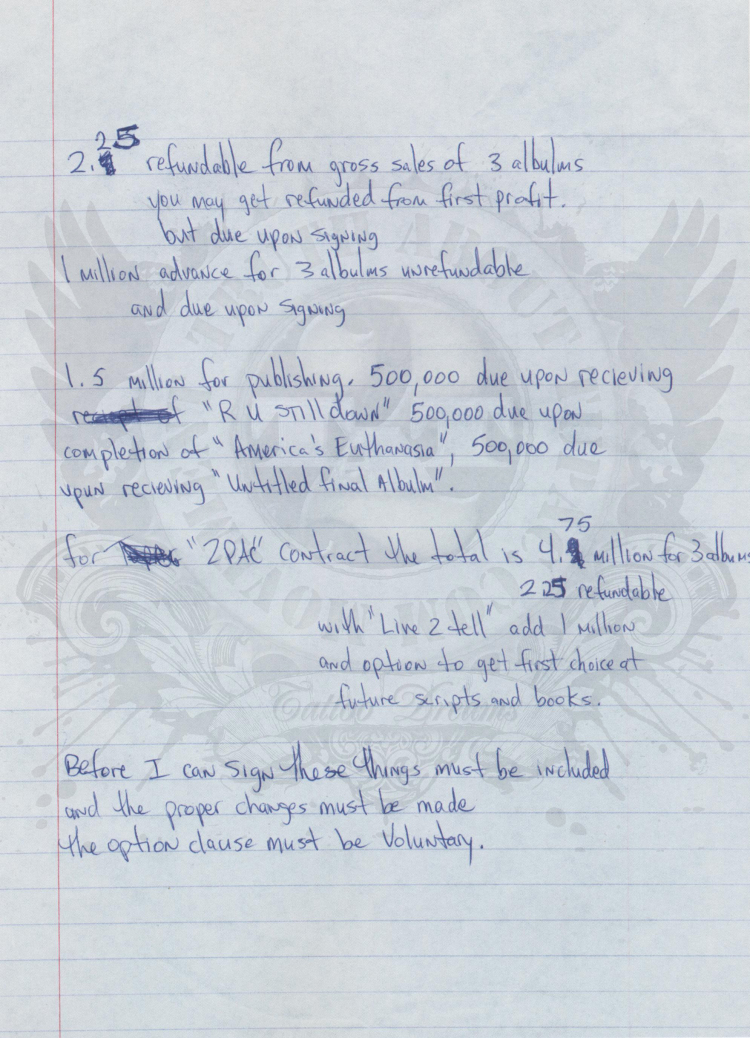 25
2. refundable from gross sales of 3 albulms
you may get refunded from first profit.
but due upon signing
1 million advance for 3 albulms unrefundable
and due upon signing
1.5 million for publishing. 500,000 due upon recieving
"R U still down" 500,000 due upon
completion of "America's Euthanasia", 500,000 due
upun recieving "Untitled final Albulm".
75
for "2PAC" contract the total is 4. million for 3 albums
2 25 refundable
with "Live 2 tell" add 1 million
and option to get first choice at
future scripts and books.
Before I can sign these things must be included
and the proper changes must be made
the option clause must be Voluntary.
Tattoo Dreams